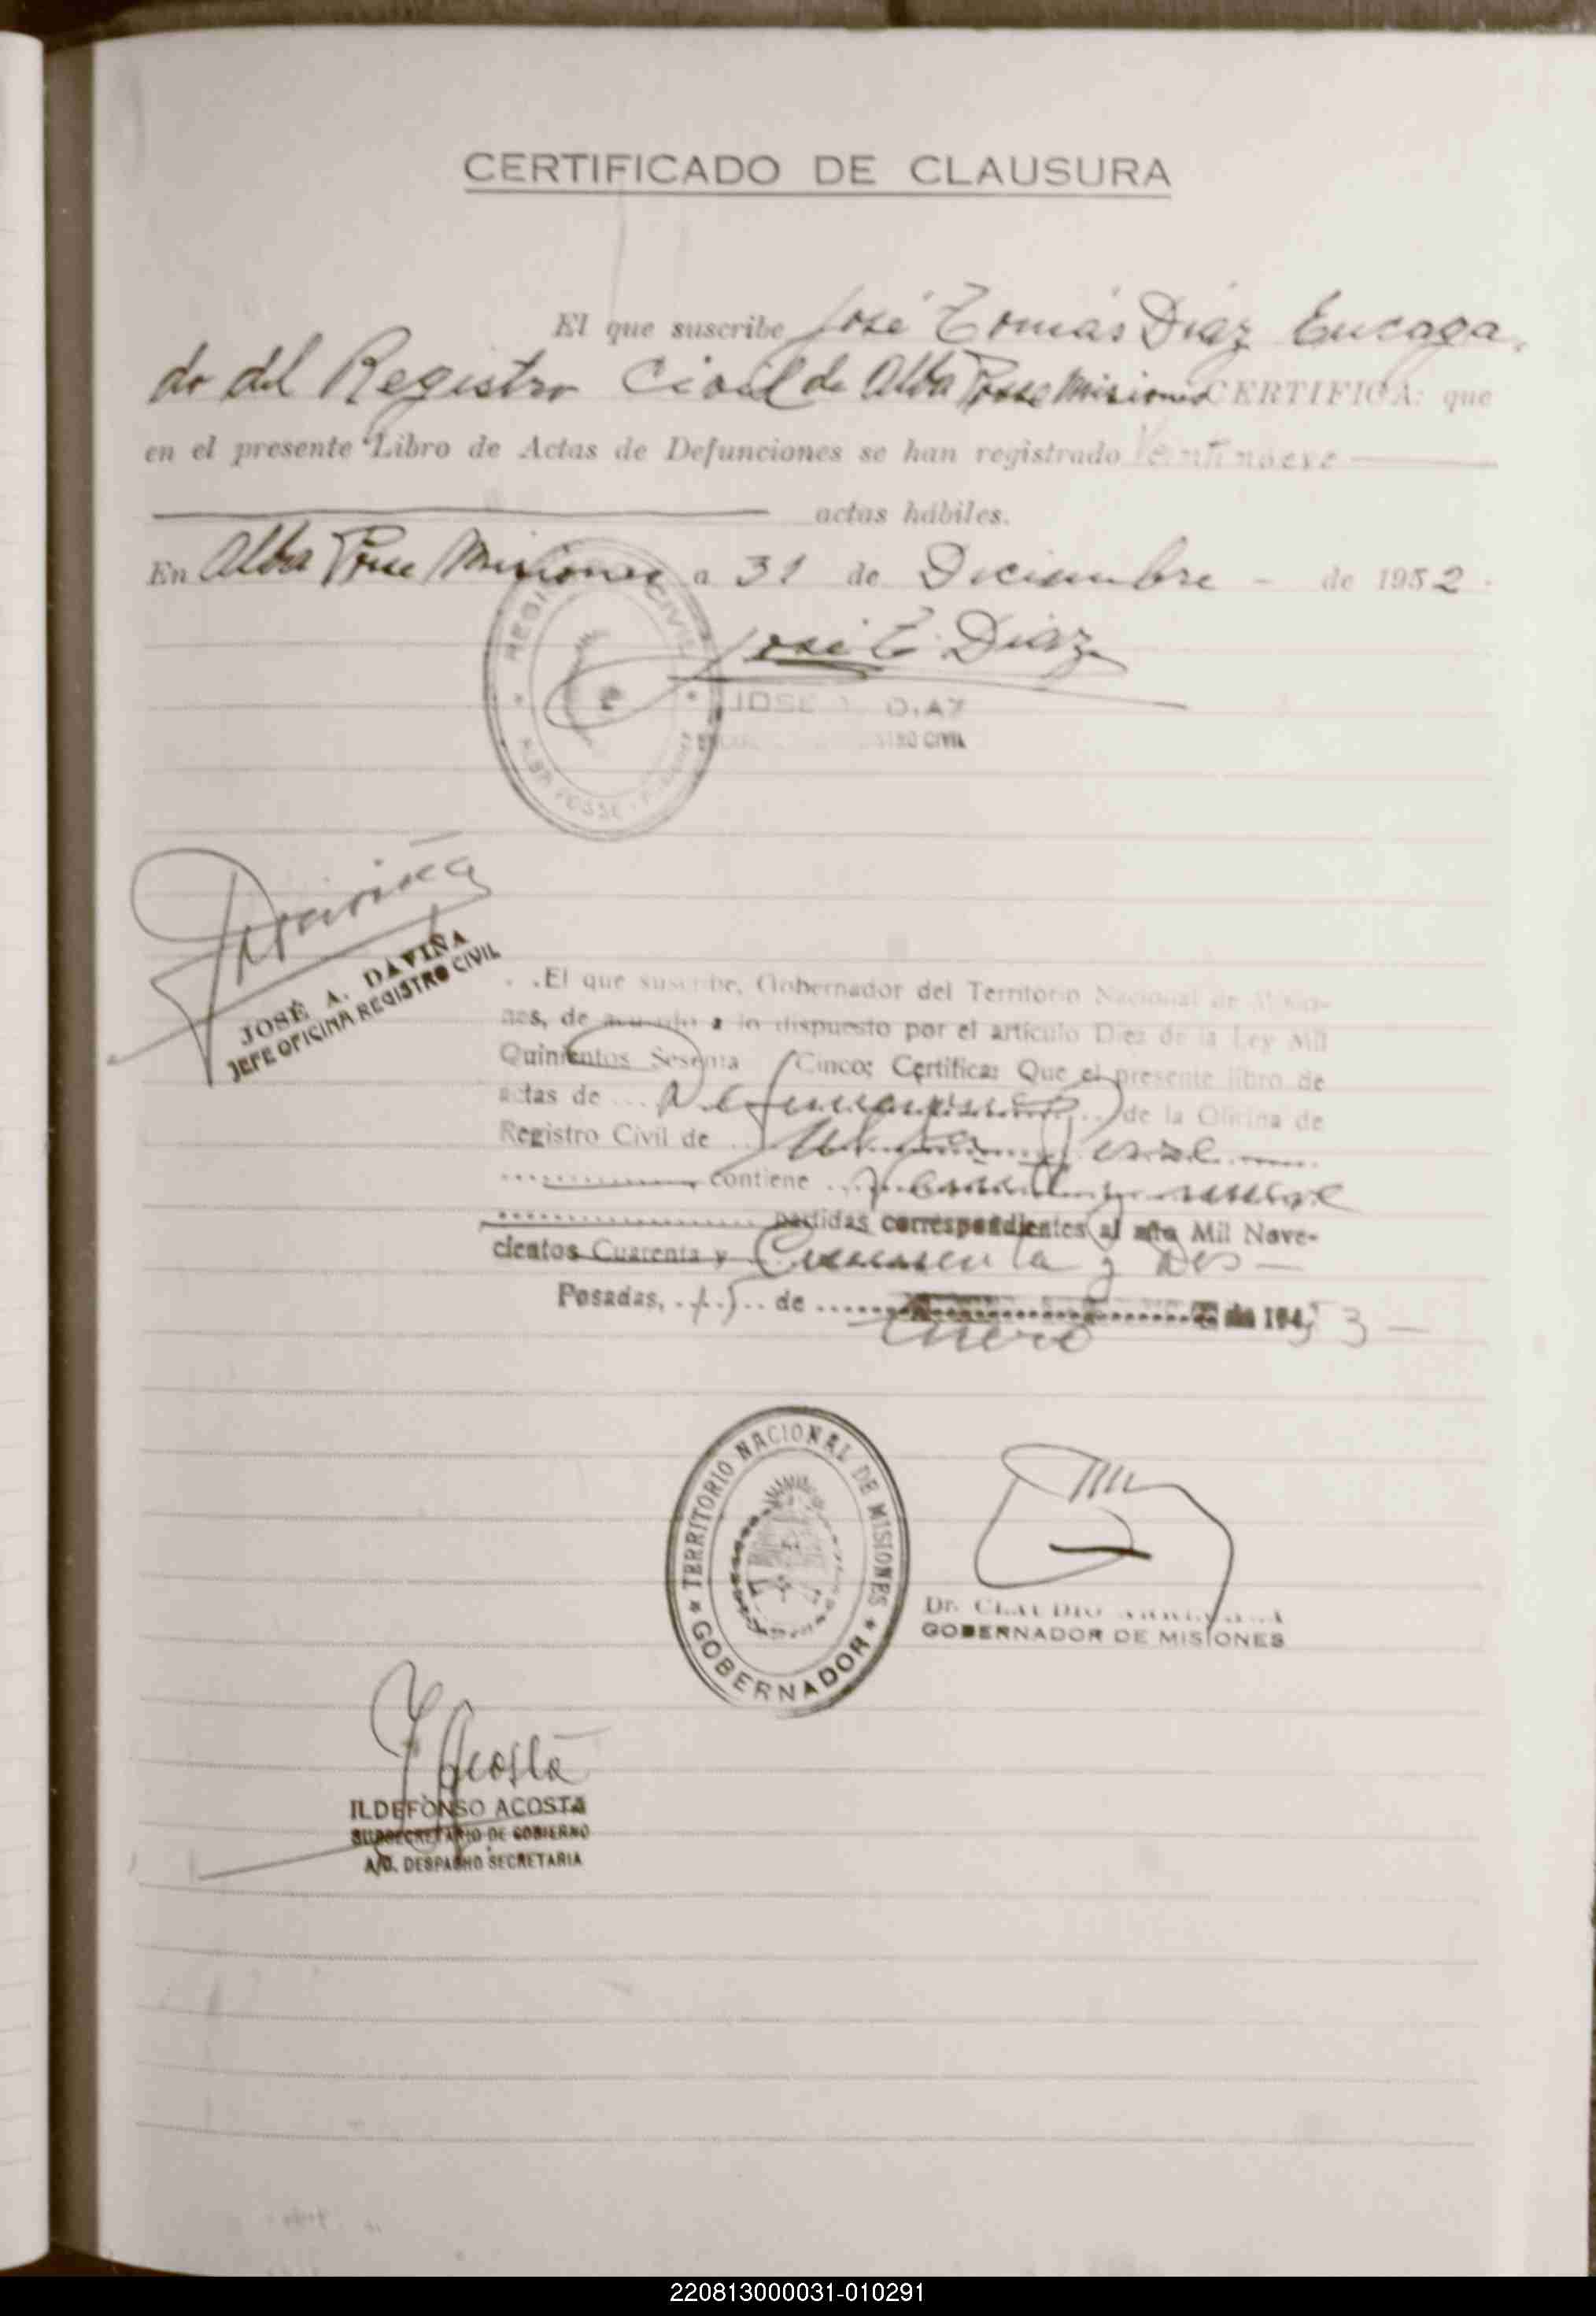 CERTIFICADO DE CLAUSURA
El que suscribe José Tomás Diaz Encaga
do del Registro Civil de Alba Posse Misiones CERTIFICA: que
en el presente Libro de Actas de Defunciones se han registrado Veintinueve
actas hábiles.
En Alba Posse Misiones a 31 de Diciembre - de 1952
José T. Diaz
REGISTRO CIVIL
ALBA POSSE
JOSE T. DIAZ
CIVIL
Daviña
JOSÉ A. DAVIÑA
JEFE OFICINA REGISTRO CIVIL
El que suscribe, Gobernador del Territorio Nacional de Misio-
nes, de acuerdo a lo dispuesto por el artículo Diez de la Ley Mil
Quinientos Sesenta Cinco; Certifica: Que el presente libro de
actas de Defunciones de la Oficina de
Registro Civil de Alba Posse
contiene nueve
partidas correspondientes al año Mil Nove-
cientos Cuarenta y Cincuenta y Dos
Posadas, 15 de de 194 53
Enero
TERRITORIO NACIONAL DE MISIONES
GOBERNADOR
Dr. CLAUDIO
GOBERNADOR DE MISIONES
Acosta
ILDEFONSO ACOSTA
SUBSECRETARIO DE GOBIERNO
A/C. DESPACHO SECRETARIA
220813000031-010291